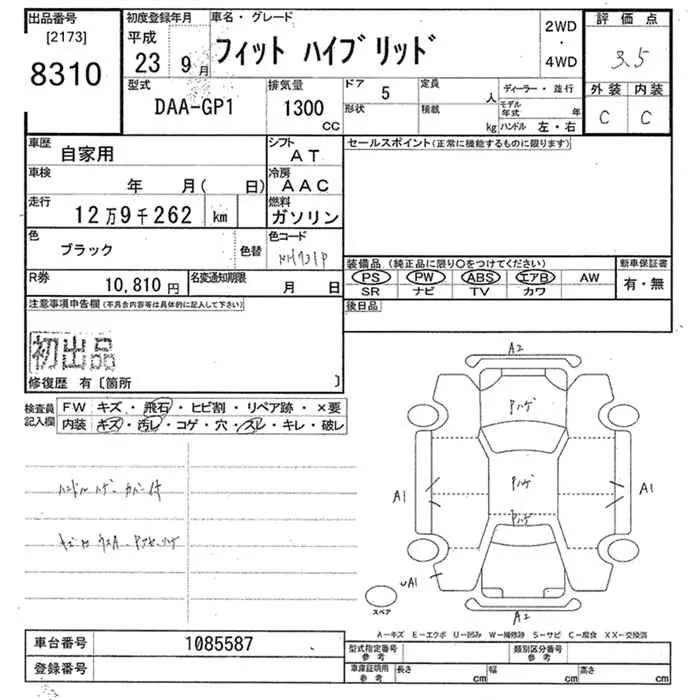 出品番号
[2173]
8310
初度登録年月
平成
23 9月
車名・グレード
フィット ハイブリッド
2WD
・
4WD
評価点
3.5
外装 内装
C C
型式
DAA-GP1
排気量
1300
CC
ドア 5
形状
定員 人
積載 kg
ディーラー・並行
モデル年式 年
ハンドル 左・右
車歴 自家用
シフト AT
セールスポイント(正常に機能するものに限ります)
車検 年 月( 日)
冷房 AAC
走行 12万9千262 km
燃料 ガソリン
色 ブラック 色替
色コード NH731P
装備品 (純正品に限り○をつけてください)
新車保証書
PS PW ABS エアB AW
有・無
SR ナビ TV カワ
R券 10,810円
名変通知期限 月 日
後日品
注意事項申告欄(不具合内容等は具体的に記入して下さい)
初出品
修復歴 有〔箇所 〕
検査員記入欄
FW キズ・飛石・ヒビ割・リペア跡・×要
内装 キズ・汚レ・コゲ・穴・スレ・キレ・破レ
ハンドルハゲ カバー付
A2
Pハゲ
A1
Pハゲ
A1
Pハゲ
UA1
A2
スペア
A-キズ E-エクボ U-凹み W-補修跡 S-サビ C-腐食 XX-交換済
車台番号 1085587
登録番号
型式指定番号
参考
類別区分番号
参考
車庫証明用
参考
長さ cm
幅 cm
高さ cm